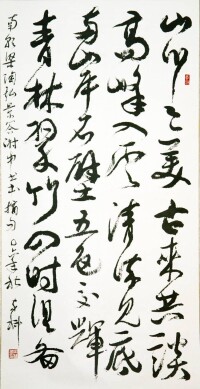 山川之美古來共談
高峰入云清流見底
兩岸石壁五色交輝
青林翠竹四时俱備
南朝梁陶弘景答谢中书书摘句